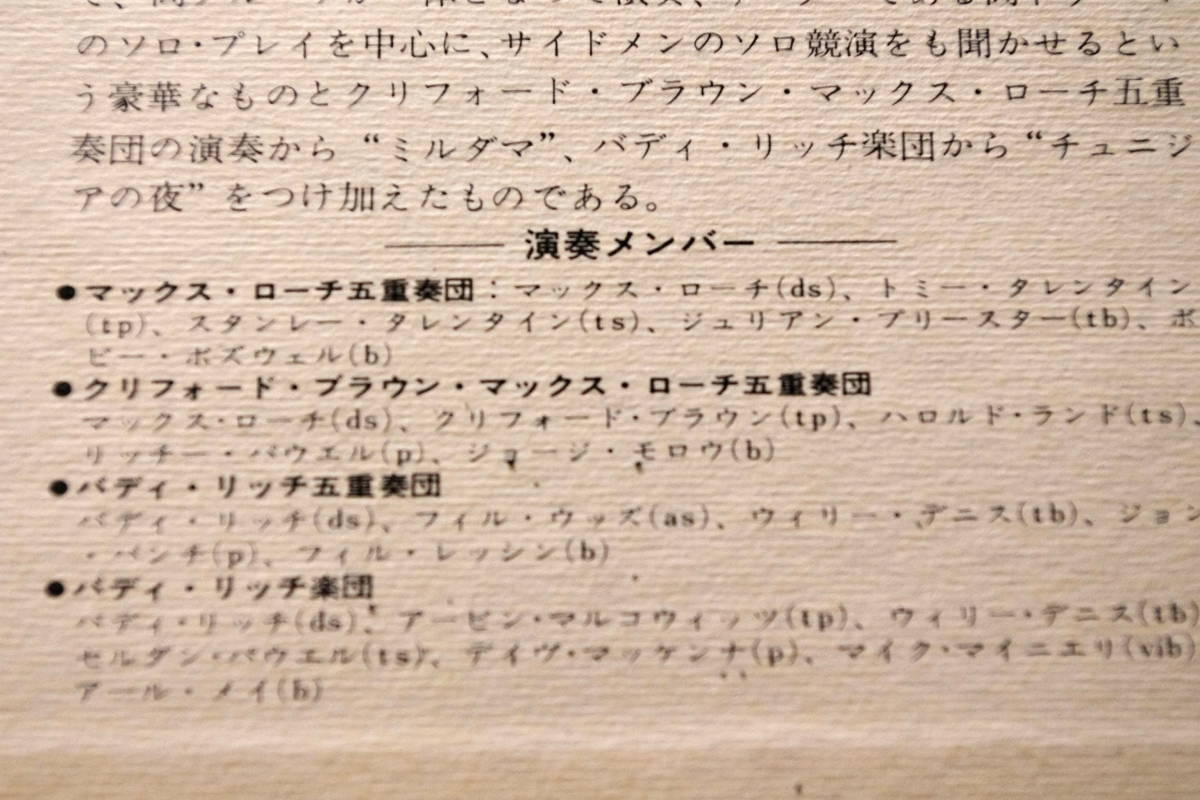 のソロ・プレイを中心に、サイドメンのソロ競演をも聞かせるとい
う豪華なものとクリフォード・ブラウン・マックス・ローチ五重
奏団の演奏から“ミルダマ”、バディ・リッチ楽団から“チュニジ
アの夜”をつけ加えたものである。
演奏メンバー
●マックス・ローチ五重奏団：マックス・ローチ(ds)、トミー・タレンタイン
(tp)、スタンレー・タレンタイン(ts)、ジュリアン・プリースター(tb)、ボ
ビー・ボズウェル(b)
●クリフォード・ブラウン・マックス・ローチ五重奏団
マックス・ローチ(ds)、クリフォード・ブラウン(tp)、ハロルド・ランド(ts)、
リッチー・パウエル(p)、ジョージ・モロウ(b)
●バディ・リッチ五重奏団
バディ・リッチ(ds)、フィル・ウッズ(as)、ウィリー・デニス(tb)、ジョン
・バンチ(p)、フィル・レッシン(b)
●バディ・リッチ楽団
バディ・リッチ(ds)、アービン・マルコウィッツ(tp)、ウィリー・デニス(tb)
セルダン・パウエル(ts)、デイヴ・マッケンナ(p)、マイク・マイニエリ(vib)
アール・メイ(b)